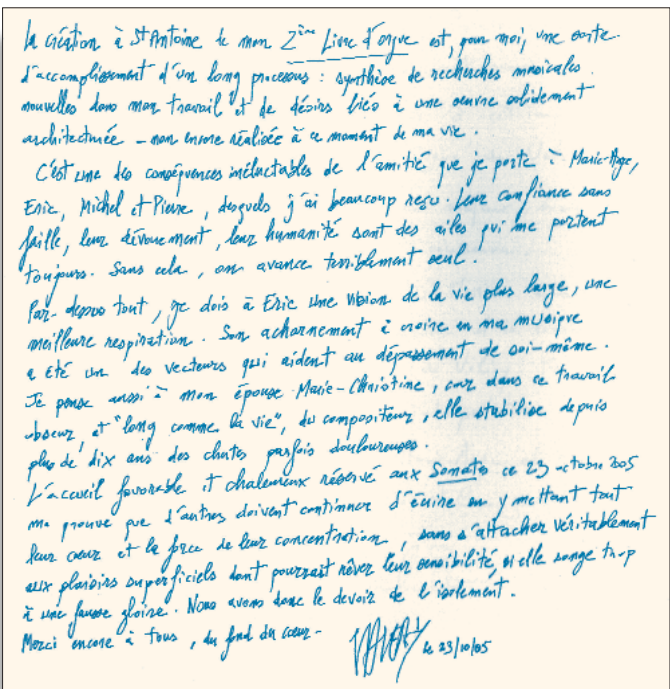 La création à St Antoine de mon 2ième Livre d'orgue est, pour moi, une sorte
d'accomplissement d'un long processus : synthèse de recherches musicales
nouvelles dans mon travail et de désirs liés à une oeuvre solidement
architecturée - non encore réalisée à ce moment de ma vie.
C'est une des conséquences inéluctables de l'amitié que je porte à Marie-Ange,
Eric, Michel et Pierre, desquels j'ai beaucoup reçu. Leur confiance sans
faille, leur dévouement, leur humanité sont des ailes qui me portent
toujours. Sans cela, on avance terriblement seul.
Par-dessus tout, je dois à Eric une vision de la vie plus large, une
meilleure respiration. Son acharnement à croire en ma musique
a été un des vecteurs qui aident au dépassement de soi-même.
Je pense aussi à mon épouse Marie-Christine, car dans ce travail
obscur, et "long comme la vie", du compositeur, elle stabilise depuis
plus de dix ans des chutes parfois douloureuses.
L'accueil favorable et chaleureux réservé aux Sonates ce 23 octobre 2005
me prouve que d'autres doivent continuer d'écrire en y mettant tout
leur coeur et la force de leur concentration, sans s'attacher véritablement
aux plaisirs superficiels dont pourrait rêver leur sensibilité, si elle songe trop
à une fausse gloire. Nous avons donc le devoir de l'isolement.
Merci encore à tous, du fond du coeur -
le 23/10/05